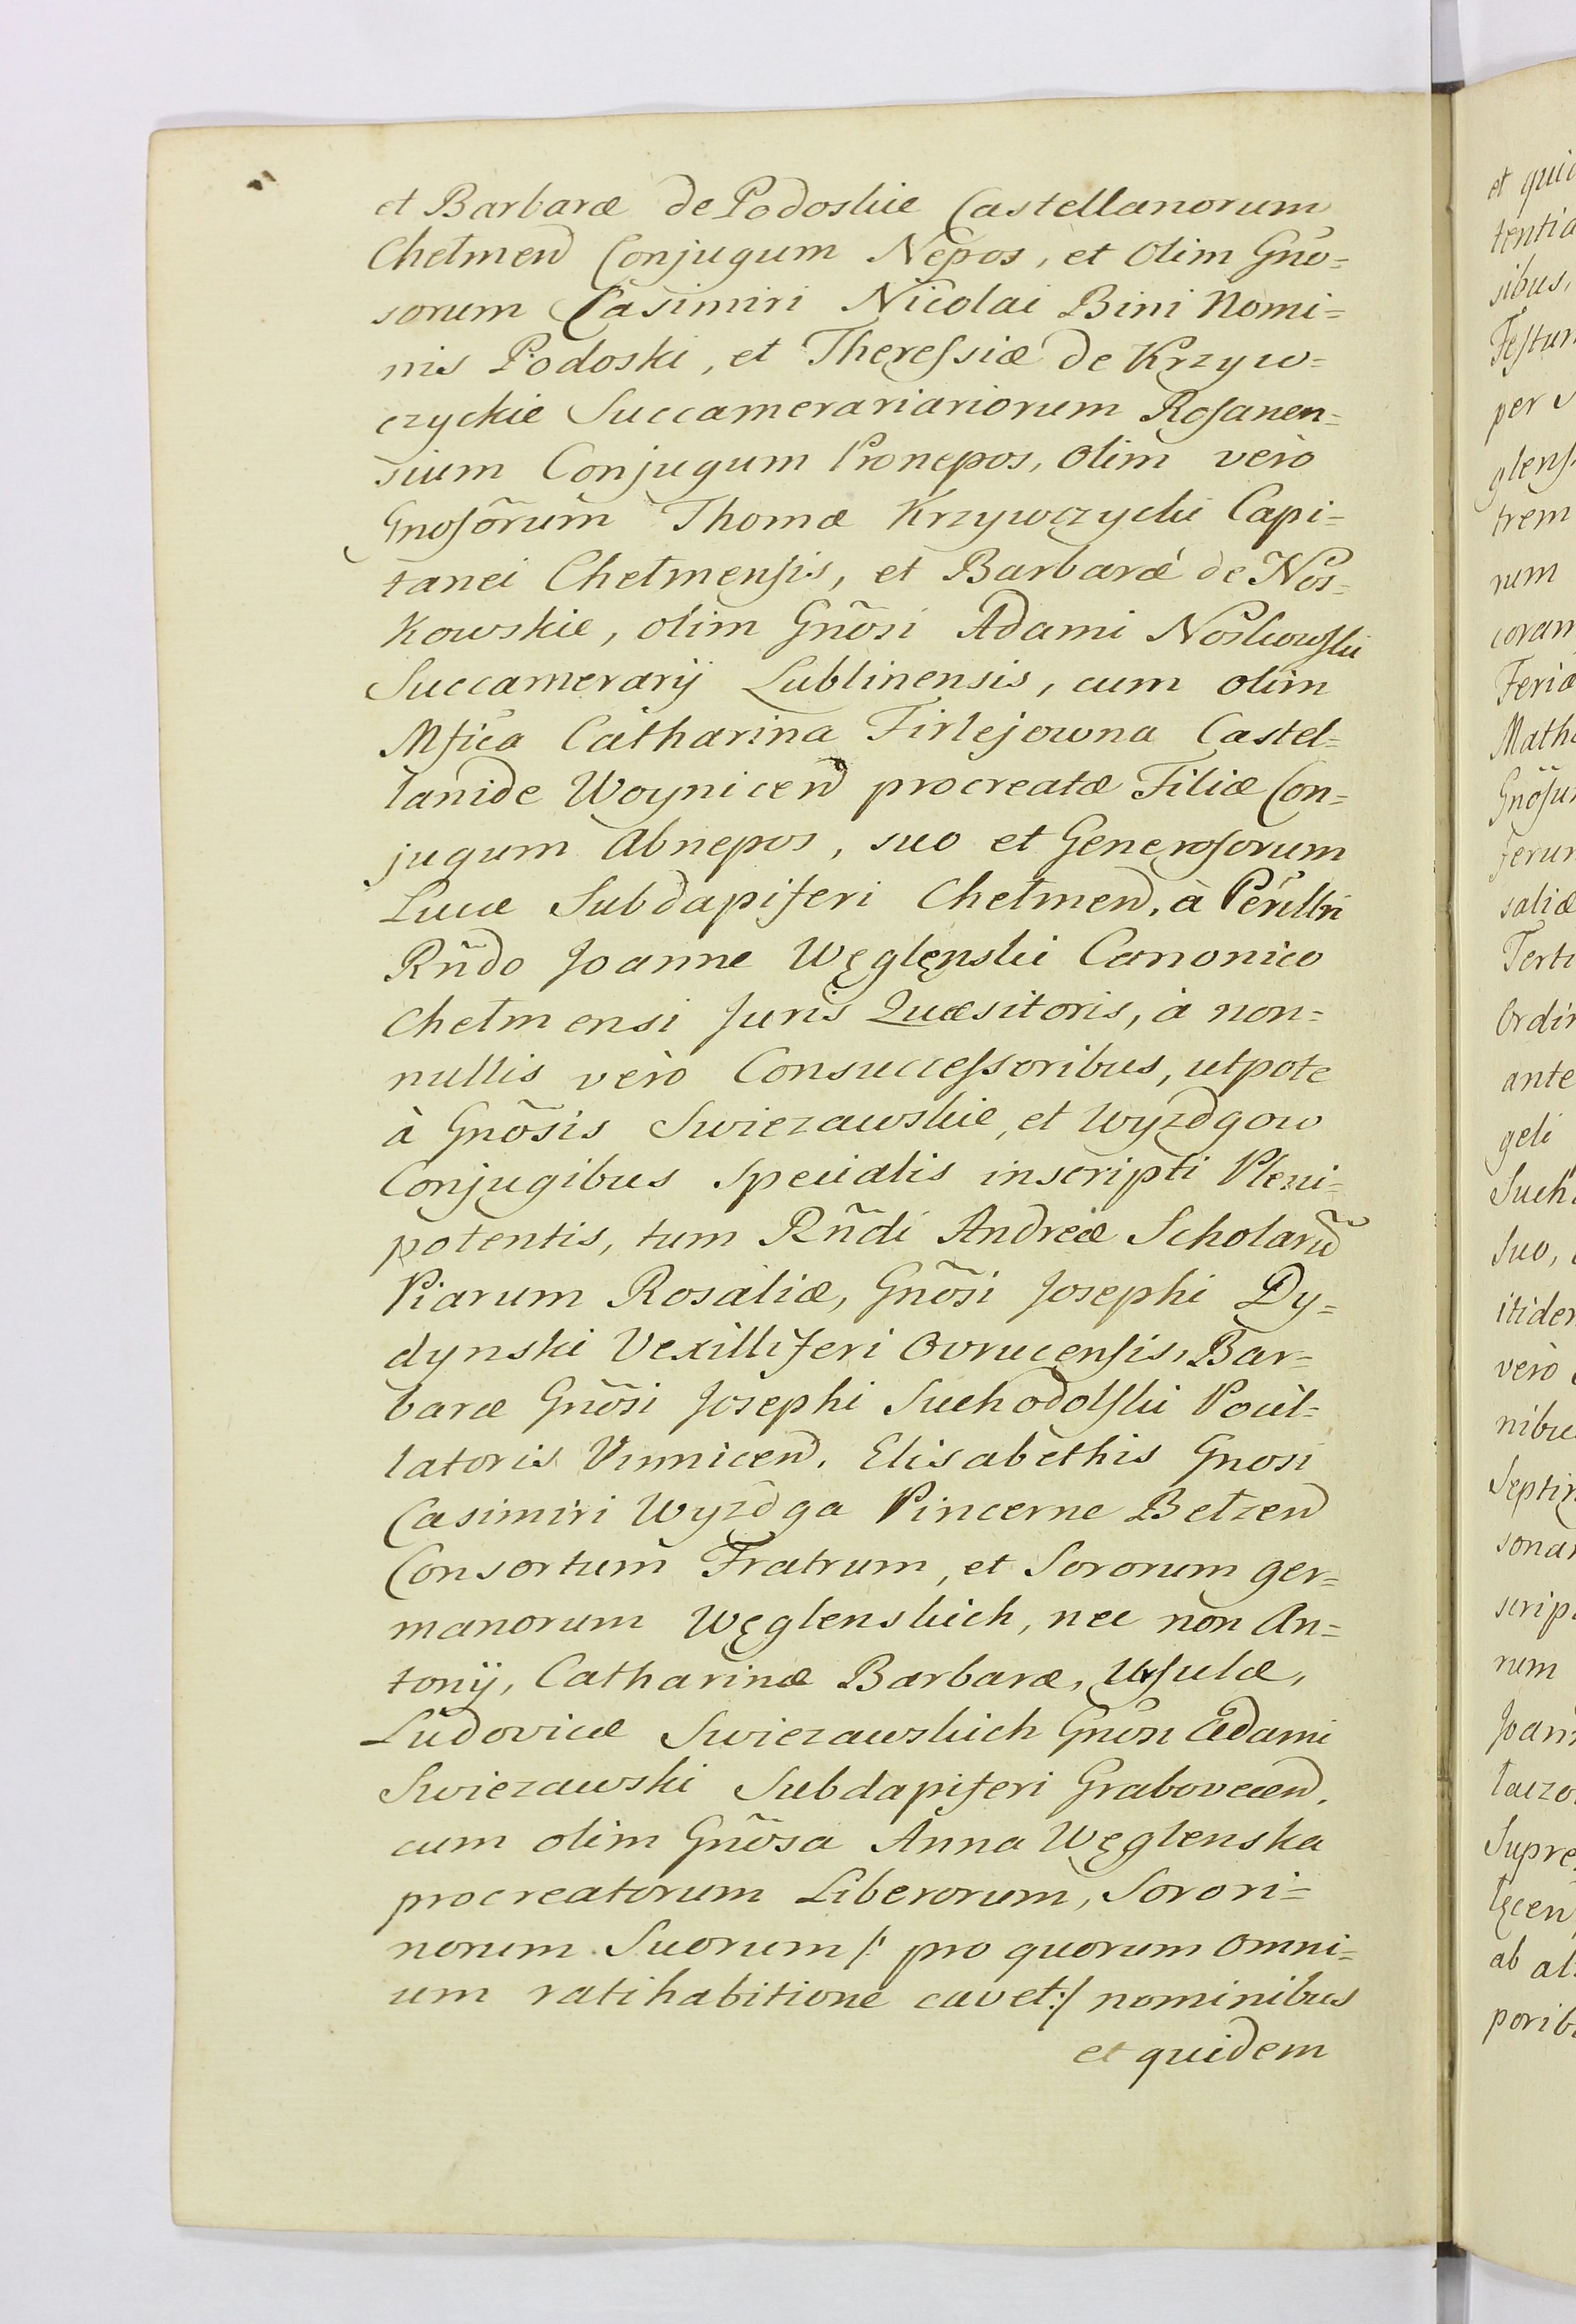 et Barbaræ de Podoskie Castellanorum
Chełmen Conjugum Nepos, et Olim Gno=
sorum Casimiri Nicolai Bini Nomi=
nis Podoski, et Theressiæ de Krzyw=
czyckie Succamerariariorum Rosanen=
sium Conjugum Pronepos, Olim verò
Gnosõrum Thomæ Krzywczycki Capi=
tanei Chełmensis, et Barbaræ de Nos=
kowskie, olim Gñosi Adami Noskowski
Succamerarij Lublinensis, cum olim
Mfica Catharina Firlejowna Castel=
lanide Woynicen procreatæ Filiæ Con=
jugum Abnepos, suo et Generosorum
Lucæ Subdapiferi Chełmen, à Perillri
Rñdo Joanne Węglęnski Canonico
Chełmensi Juris Quæsitoris, à non=
nullis verò Consuccessoribus, utpote
à Gñosis Swiezawskie, et Wyzdgow
Conjugibus specialis inscripti Pleni=
potentis, tum Rñdi Andreæ Scholarũ
Piarum Rosaliæ, Gñosi Josephi Dy=
dynski Vexilliferi Ovrucensis, Bar=
baræ Gñosi Josephi Suchodolski Pocil=
latoris Vinnicen, Elisabethis Gnosi
Casimiri Wyzdga Pincerne Bełzen
Consortum Fratrum, et Sororum ger=
manorum Węglenskich, nec non An=
tonij, Catharinæ Barbaræ, Ursulæ,
Ludovicæ Swiezawskich Gñosi Adami
Swiezawski Subdapiferi Grabovecen,
cum olim Gñosa Anna Węglenska
procreatorum Liberorum, Sorori=
norum Suorum /: pro quorum omni=
um ratihabitione cavet :/ nominibus
et quidem
et qui
tentia
sibus,
Festum
per
glens
trem
rum
coram
Feriæ
Math
Gñosu
ferun
saliæ
Terti
Ordin
ante
geli
Such
suo,
itidem
verò
nibu
Septin
sona
scrip
rum
Joan
łaczo
Supre
łęcen
ab al
porib